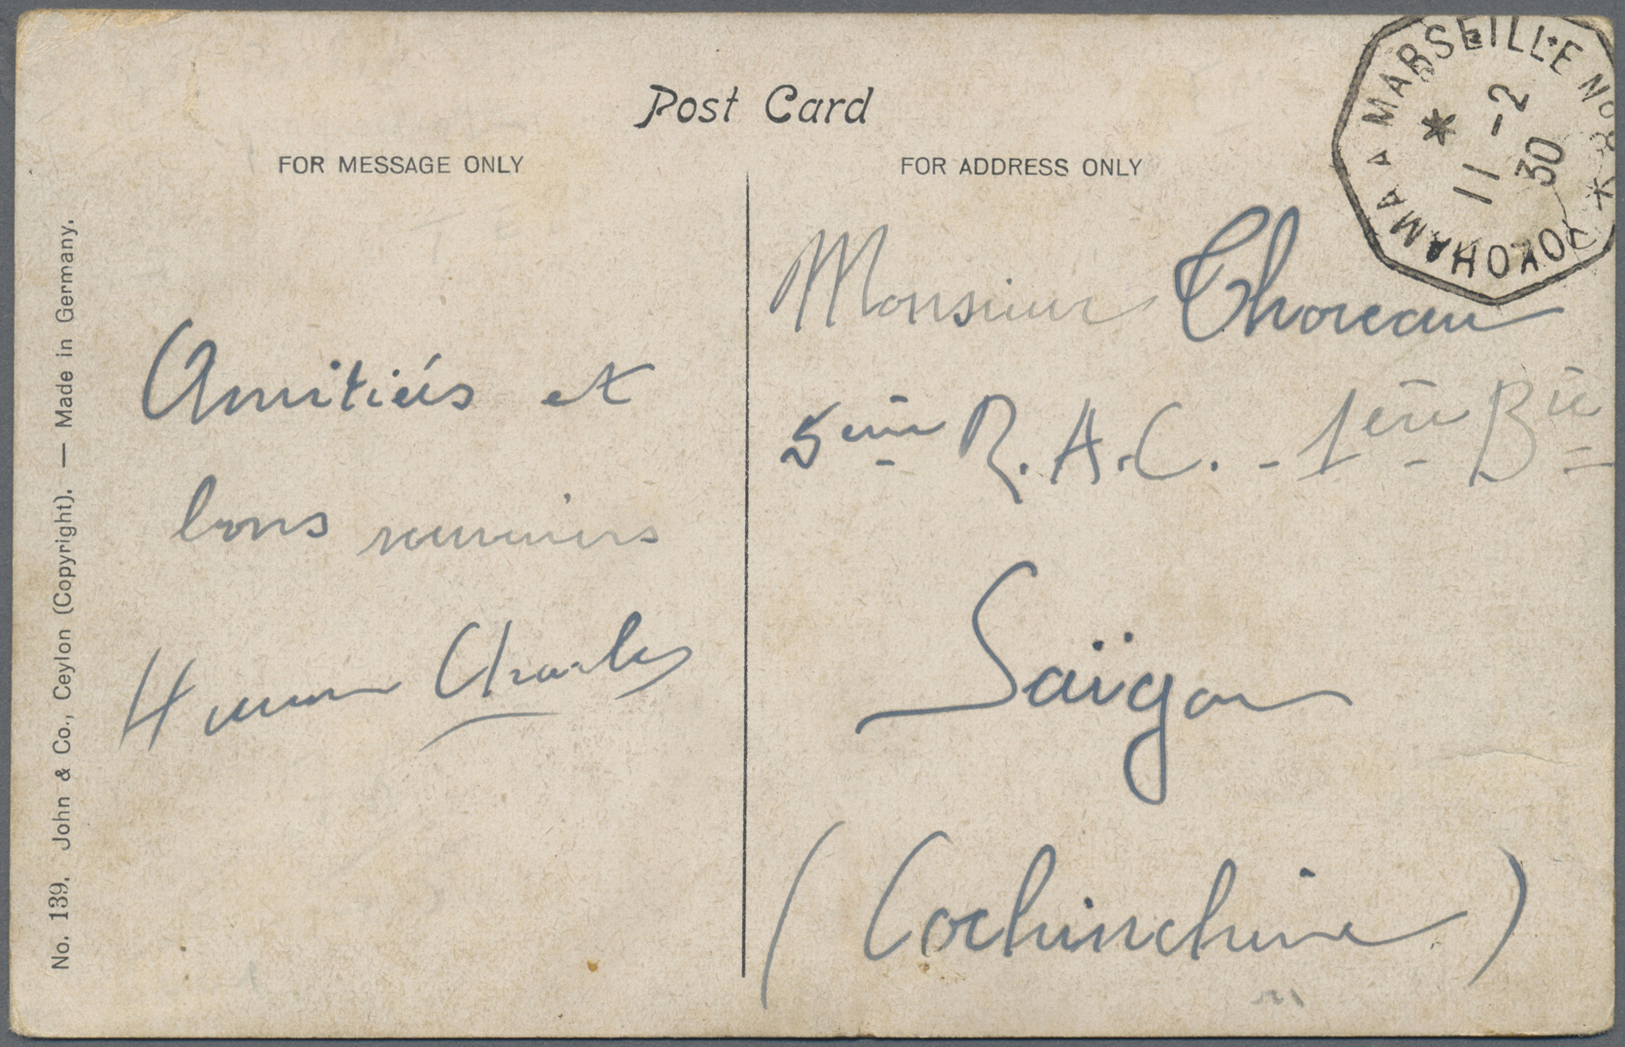 Post Card
FOR MESSAGE ONLY
FOR ADDRESS ONLY
YOKOHAMA A MARSEILLE No 8
11 -2
30
No. 139. John & Co., Ceylon (Copyright). — Made in Germany.
Amitiés et
bons souvenirs
Charles
Monsieur Thoreau
5ème R.A.C. - 1ère Bie
Saïgon
(Cochinchine)